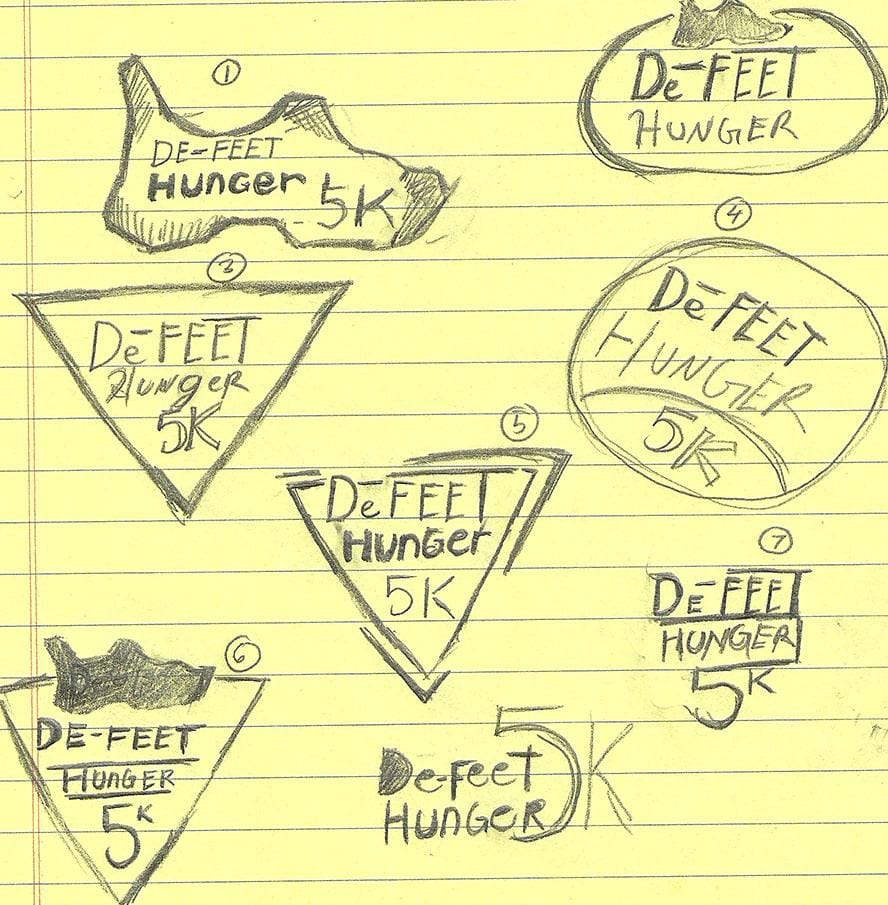 ①
DE-FEET
Hunger
5K
De-FEET
HUNGER
3
De-FEET
Hunger
5K
④
De-FEET
HUNGER
5K
⑤
De-FEET
Hunger
5K
⑥
DE-FEET
HUNGER
5K
⑦
DE-FEET
HUNGER
5K
De-feet
HUnGeR
5K